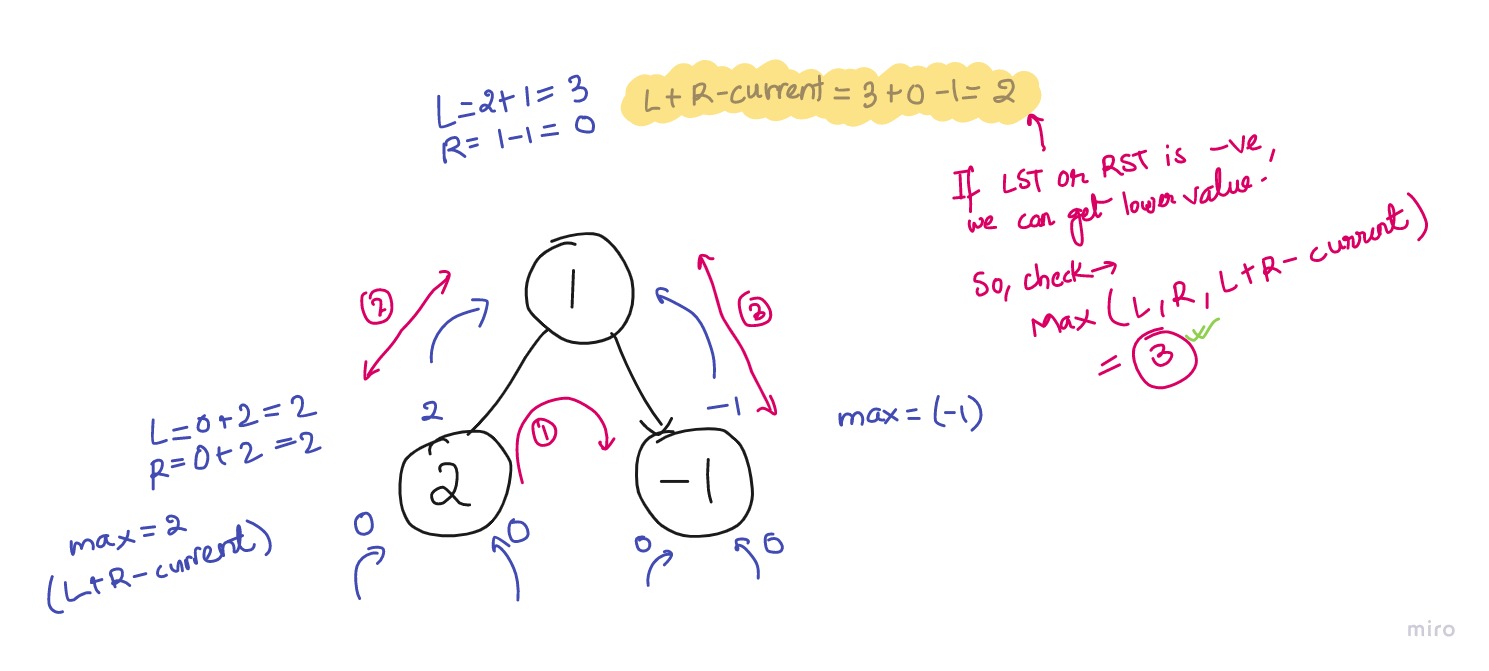 L=2+1= 3
R= 1-1= 0
L+R-current = 3+0-1= 2
If LST or RST is -ve,
we can get lower value.
So, check→
Max (L,R, L+R-current)
= 3
1
2
3
2
-1
1
L=0+2=2
R=0+2=2
max = (-1)
2
-1
max=2
(L+R-current)
0
0
0
0
miro